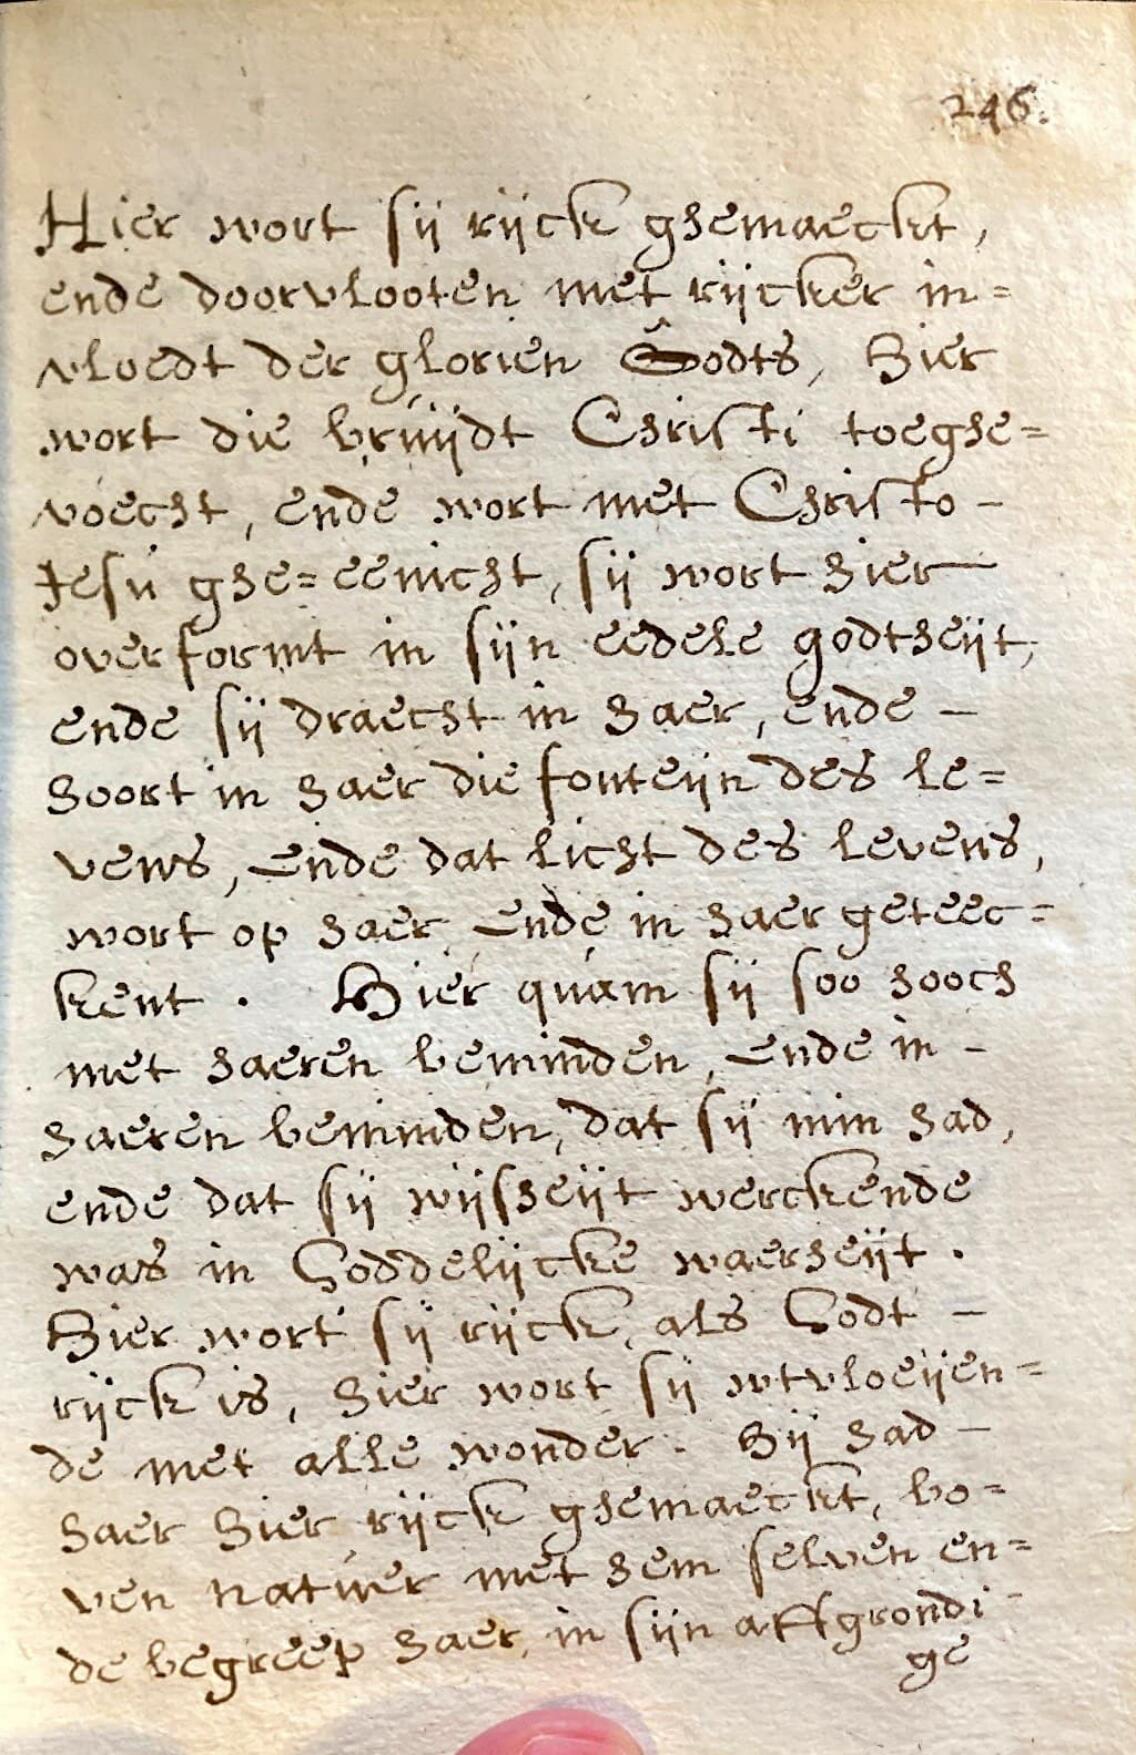 246.
Hier wort sij rijck ghemaeckt,
ende doorvlooten met rijcker in=
vloedt der glorien Godts, Hier
wort die bruijdt Christi toeghe=
voecht, ende wort met Christo -
Jesu ghe=eenicht, sij wort hier
overformt in sijn eedele godtheijt,
ende sij draecht in haer, ende -
hoort in haer die fonteijn des le=
vens, ende dat licht des levens,
wort op haer, ende in haer geteec=
kent. Hier quam sij soo hooch
met haeren beminden, ende in -
haeren beminden, dat sij min had,
ende dat sij wijsheijt werckende
was in Goddelijcke waerheijt.
Hier wort sij rijck, als Godt -
rijck is, hier wort sij wtvloeijen=
de met alle wonder. Hij had -
haer hier rijck ghemaeckt, bo=
ven natuer met hem selven en=
de begreep haer, in sijn affgrondi-
ge